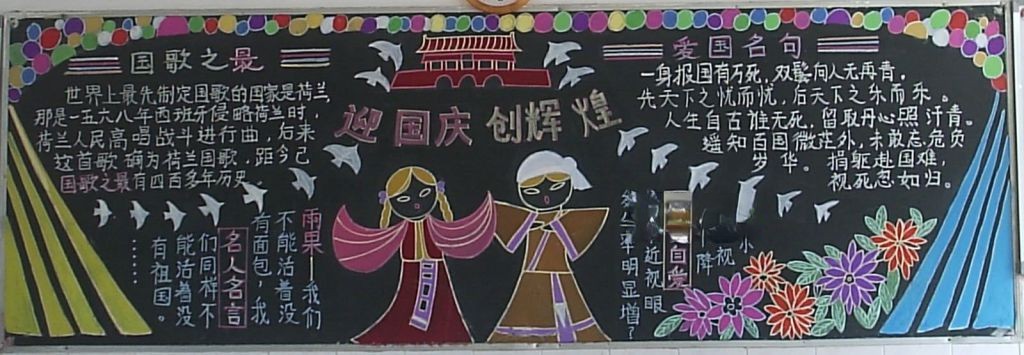 国歌之最
世界上最先制定国歌的国家是荷兰,
那是一五六八年西班牙侵略荷兰时,
荷兰人民高唱战斗进行曲,后来
这首歌确为荷兰国歌,距今已
国歌之最有四百多年历史
迎国庆 创辉煌
爱国名句
一身报国有万死,双鬓向人无再青。
先天下之忧而忧,后天下之乐而乐。
人生自古谁无死,留取丹心照汗青。
遥知百国微茫外,未敢忘危负
岁华。 捐躯赴国难,
视死忽如归。
雨果——我们
不能活着没
有面包,我
名人名言
们同样不
能活着没
有祖国。
……
小
视
降
自爱
近视眼
率明显增?